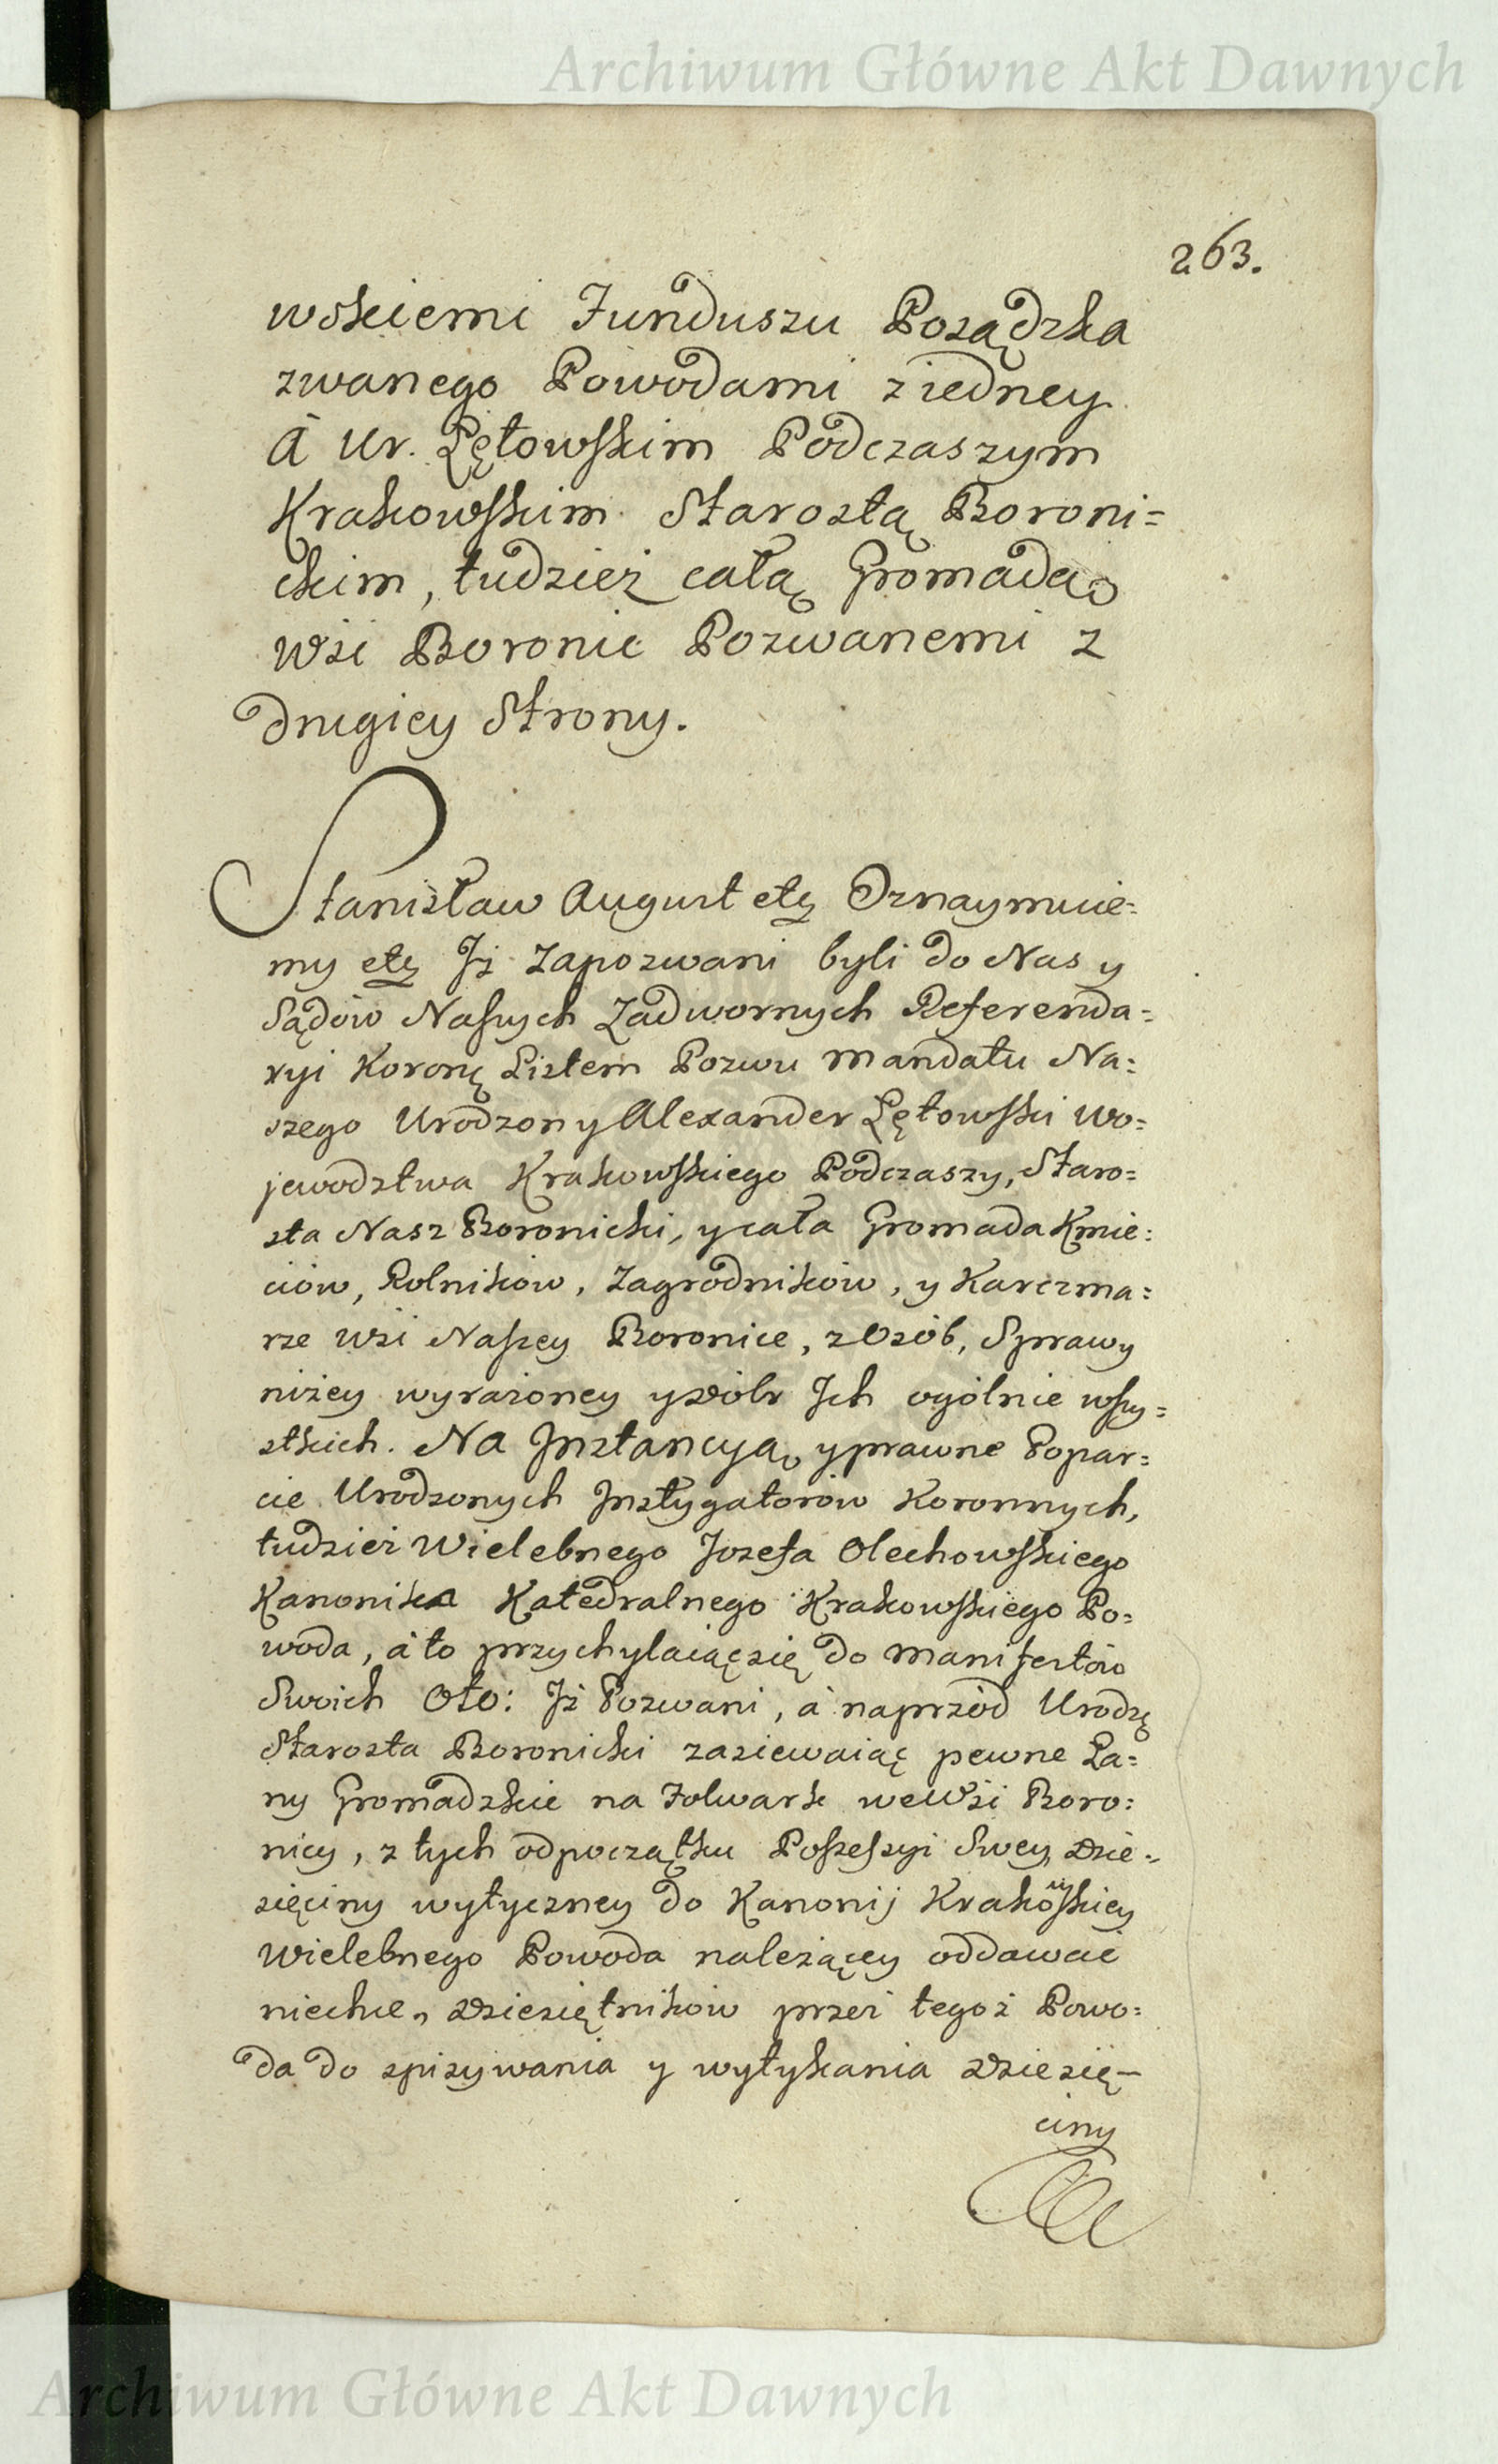 Archiwum Główne Akt Dawnych
263.
wskiemi Funduszu Posądzka
zwanego Powodami z iedney
à Ur. Łętowskim Podczaszym
Krakowskim Starostą Boroni=
ckim, tudzież całą Gromadą
Wsi Boronic Pozwanemi z
drugiey Strony.
Stanisław August etc Oznaymuie=
my etc Jż Zapozwani byli do Nas y
Sądów Naszych Zadwornych Referenda=
ryi Koronę Listem Pozwu Mandatu Na=
szego Urodzony Alexander Łętowski Wo=
jewodztwa Krakowskiego Podczaszy, Staro=
sta Nasz Boronicki, y cała Gromada Kmie=
ciów, Rolników, Zagrodników, y Karczma=
rze wsi Naszey Boronice, z Osób, Sprawy
niżey wyrażoney y dóbr Jch ogólnie wszy=
stkich. Na Jnstancyą, y prawne Popar=
cie Urodzonych Jnstygatorów Koronnych,
tudzież Wielebnego Jozefa Olechowskiego
Kanonika Katedralnego Krakowskiego Po=
woda, à to przychylaiąc się do Manifestów
Swoich Oto: Jż Pozwani, à naprzód Urodzę
Starosta Boronicki zasiewaiąc pewne Ła=
ny Gromadzkie na Folwark we Wsi Boro=
nicy, z tych od początku Possessyi Swey, Dzie=
sięciny wytyczney do Kanonij Krakowskiey
Wielebnego Powoda należącey oddawać
niechce, Dziesiętników przez tegoż Powo=
da do spisywania y wytykania Dziesię-
ciny
Archiwum Główne Akt Dawnych